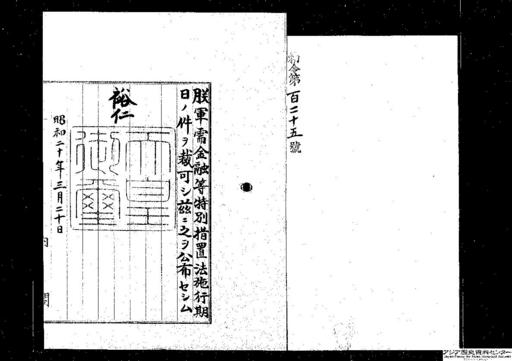 勅令第百二十五號
朕軍需金融等特別措置法施行期
日ノ件ヲ裁可シ茲ニ之ヲ公布セシム
裕仁
天皇
御璽
昭和二十年三月二十日
内閣
アジア歴史資料センター